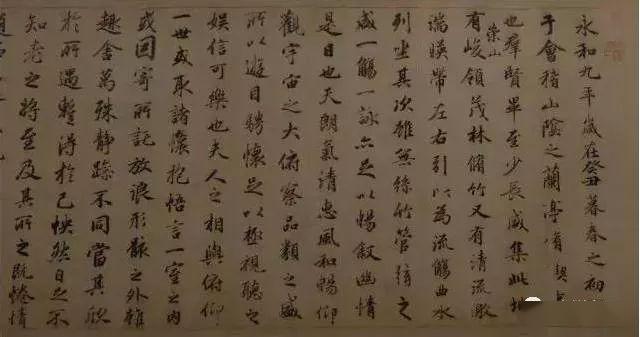 永和九年歲在癸丑暮春之初
于會稽山陰之蘭亭脩禊
也羣賢畢至少長咸集此地
有崇山峻領茂林脩竹又有清流激
湍暎帶左右引以為流觴曲水
列坐其次雖無絲竹管弦之
盛一觴一詠亦足以暢敘幽情
是日也天朗氣清惠風和暢仰
觀宇宙之大俯察品類之盛
所以遊目騁懷足以極視聽之
娛信可樂也夫人之相與俯仰
一世或取諸懷抱悟言一室之內
或因寄所託放浪形骸之外雖
趣舍萬殊靜躁不同當其欣
於所遇暫得於己怏然自足不
知老之將至及其所之既惓情